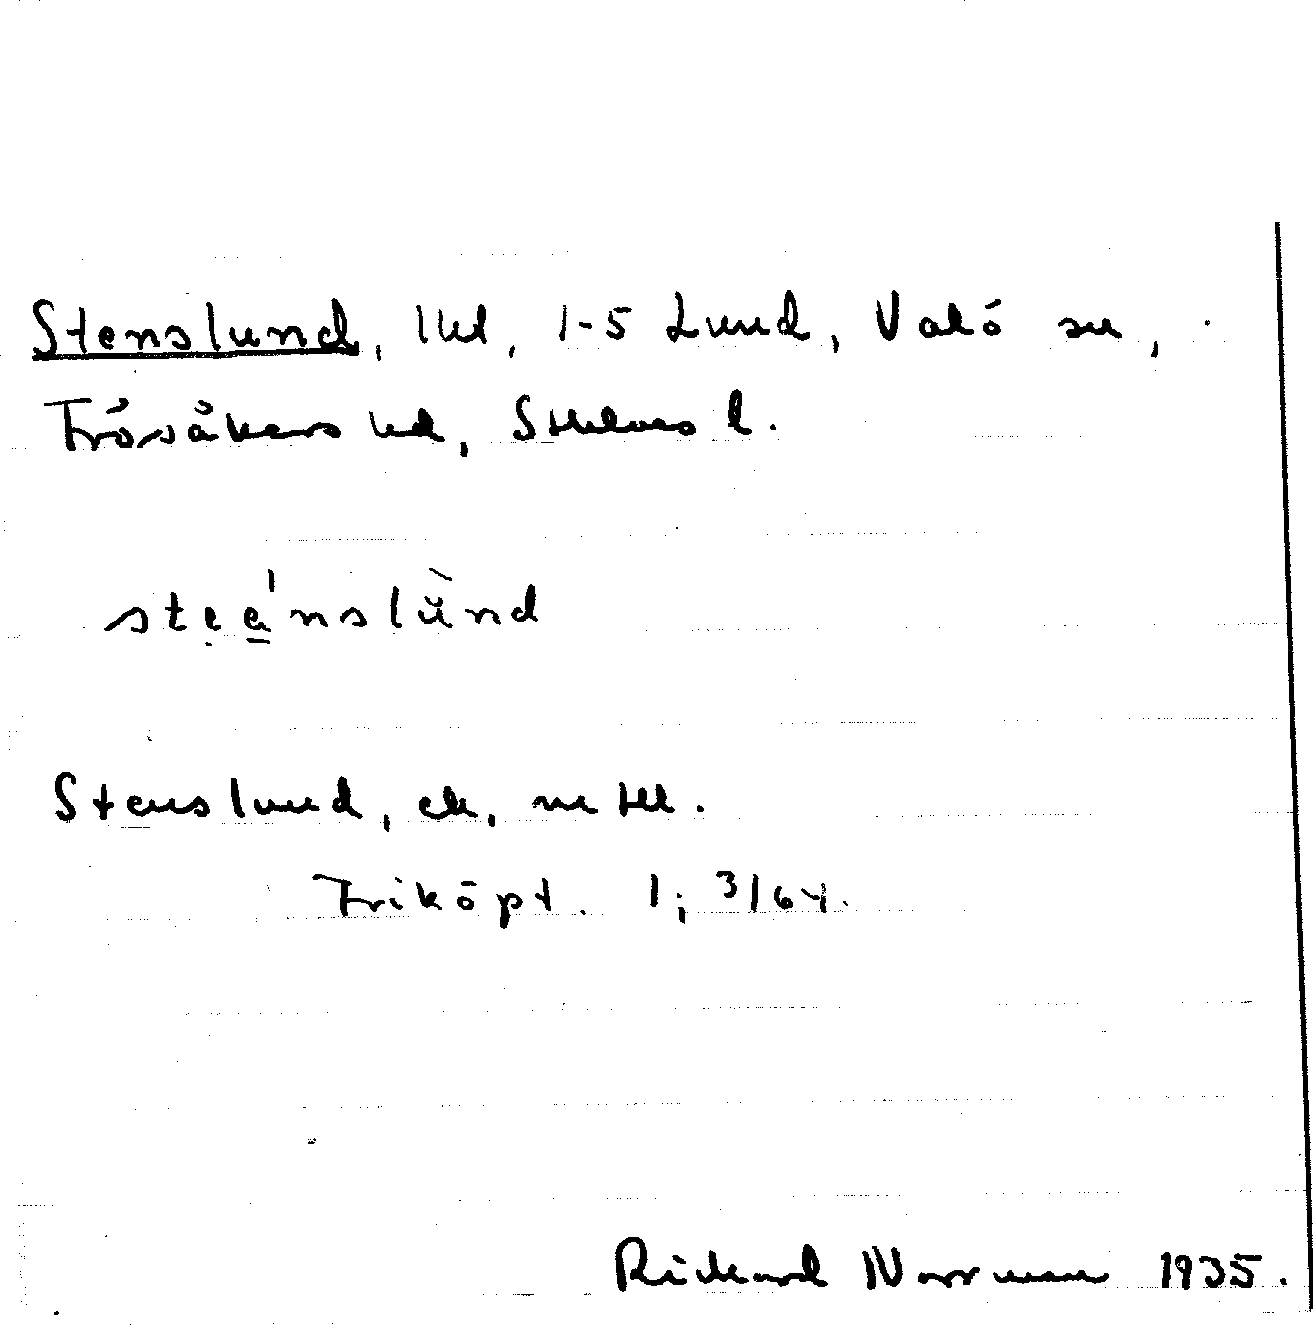 Stenslund, lhl, 1-5 Lund, Valö sn,
Frösåkers hd, Sthlms l.
stẹa̱'nslùnd
Stenslund, ek. m tkl.
Friköpt. 1; 3/64.
Rickard Norrman 1935.